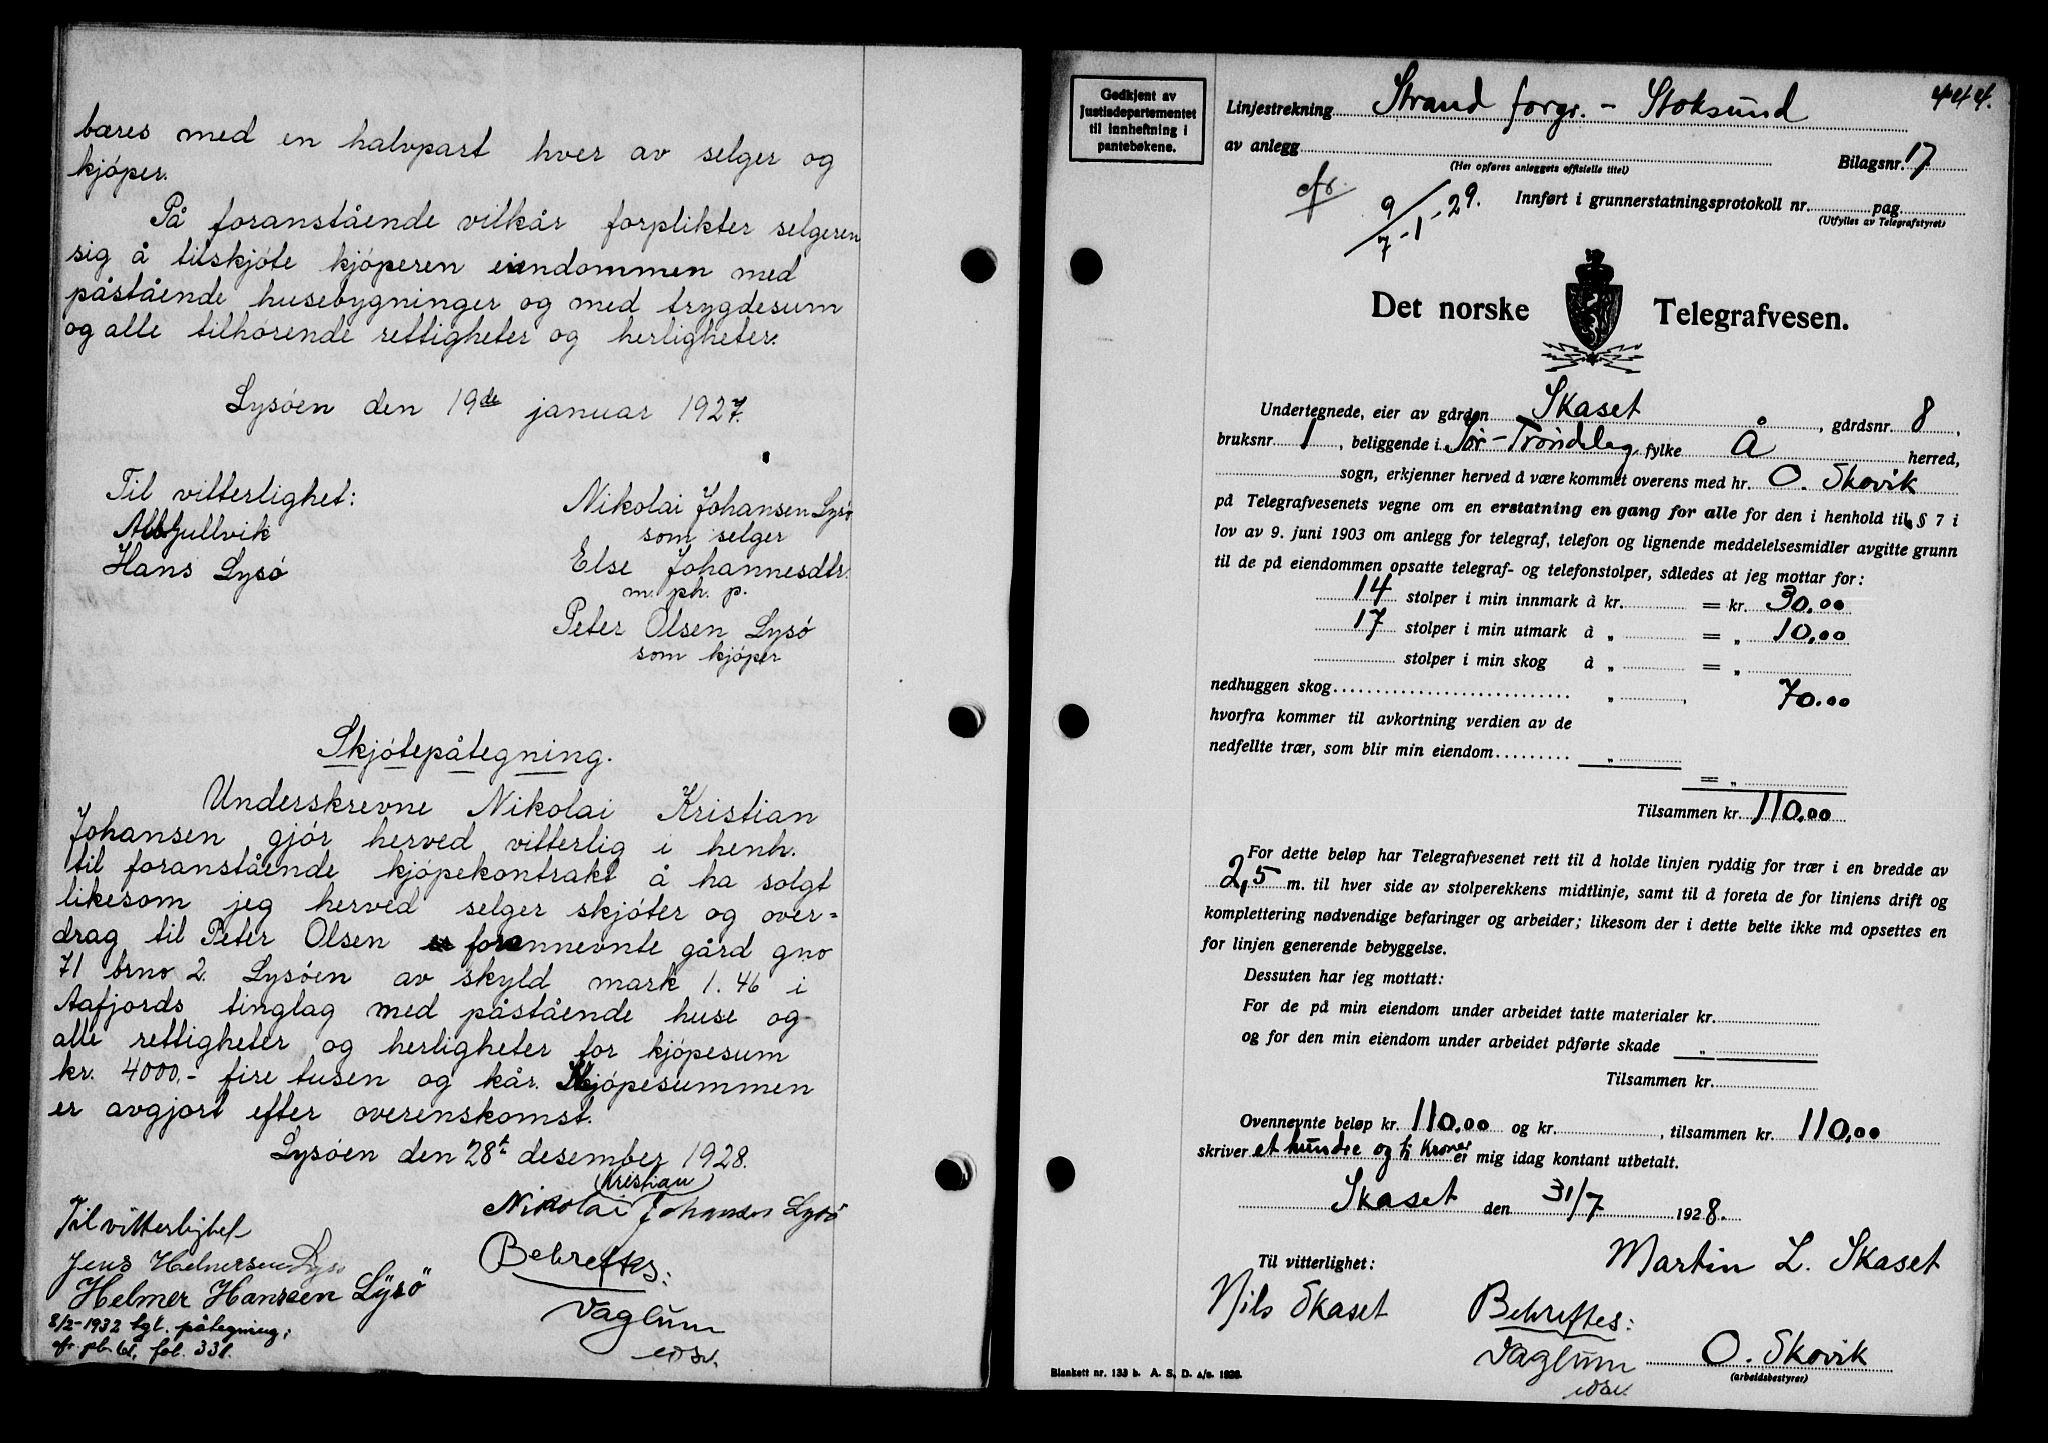 bæres med en halvpart hver av selger og
kjöper.
På foranstående vilkår forplikter selgeren
sig å tilskjöte kjöperen eiendommen med
påstående husebygninger og med trygdesum
og alle tilhörende rettigheter og herligheter.
Lysöen den 19de januar 1927.
Til vitterlighet:
Gullvik
Hans Lysö
Nikolai Johansen Lysö
som selger
Else Johannesdtr.
m. ph. p.
Peter Olsen Lysö
som kjöper
Skjötepåtegning.
Underskrevne Nikolai Kristian
Johansen gjör herved vitterlig i henh.
til foranstående kjöpekontrakt å ha solgt
likesom jeg herved selger skjöter og over=
drag til Peter Olsen forannevnte gård gno
71 brno 2. Lysöen av skyld mark 1.46 i
Aafjords tinglag med påstående huse og
alle rettigheter og herligheter for kjöpesum
kr. 4000.- fire tusen og kår. Kjöpesummen
er avgjort efter overenskomst.
Lysöen den 28t desember 1928.
Kristian
Nikolai Johansen Lysö
Til vitterlighet
Jens Helmersen Lysö
Helmer Hansen Lÿsö
Bekreftes:
Vaglum
edsv.
8/2-1932 tgl. påtegning;
cfr pb. 61, fol. 331.
444.
Godkjent av
Justisdepartementet
til innheftning i
pantebøkene.
Linjestrekning Strand forgr. - Stoksund
av anlegg Bilagsnr. 17
(Her opføres anleggets offisielle titel)
cfr. 9/7-1-29.
Innført i grunnerstatningsprotokoll nr. pag.
(Utfylles av Telegrafstyret)
Det norske Telegrafvesen.
Undertegnede, eier av gården Skaset, gårdsnr. 8,
bruksnr 1, beliggende i Sör-Tröndelag fylke Å herred,
sogn, erkjenner herved å være kommet overens med hr. O. Skovik
på Telegrafvesenets vegne om en erstatning en gang for alle for den i henhold til § 7 i
lov av 9. juni 1903 om anlegg for telegraf, telefon og lignende meddelelsesmidler avgitte grunn
til de på eiendommen opsatte telegraf- og telefonstolper, således at jeg mottar for:
14 stolper i min innmark à kr. = kr. 30.00
17 stolper i min utmark à „ = „ 10,00
stolper i min skog à „ = „
nedhuggen skog „ 70.00
hvorfra kommer til avkortning verdien av de
nedfellte trær, som blir min eiendom „
= „
Tilsammen kr. 110,00
For dette beløp har Telegrafvesenet rett til å holde linjen ryddig for trær i en bredde av
2,5 m. til hver side av stolperekkens midtlinje, samt til å foreta de for linjens drift og
komplettering nødvendige befaringer og arbeider; likesom der i dette belte ikke må opsettes en
for linjen generende bebyggelse.
Dessuten har jeg mottatt:
For de på min eiendom under arbeidet tatte materialer kr.
og for den min eiendom under arbeidet påførte skade „
Tilsammen kr.
Ovennevnte beløp kr. 110,00 og kr. , tilsammen kr. 110,00
skriver et hundre og ti Kroner er mig idag kontant utbetalt.
Skaset den 31/7 1928.
Til vitterlighet:
Martin L. Skaset
Nils Skaset
Bekreftes:
Vaglum
edsv.
O. Skovik
(arbeidsbestyrer)
Blankett nr. 133 b. A. S. D. 4/6. 1928.